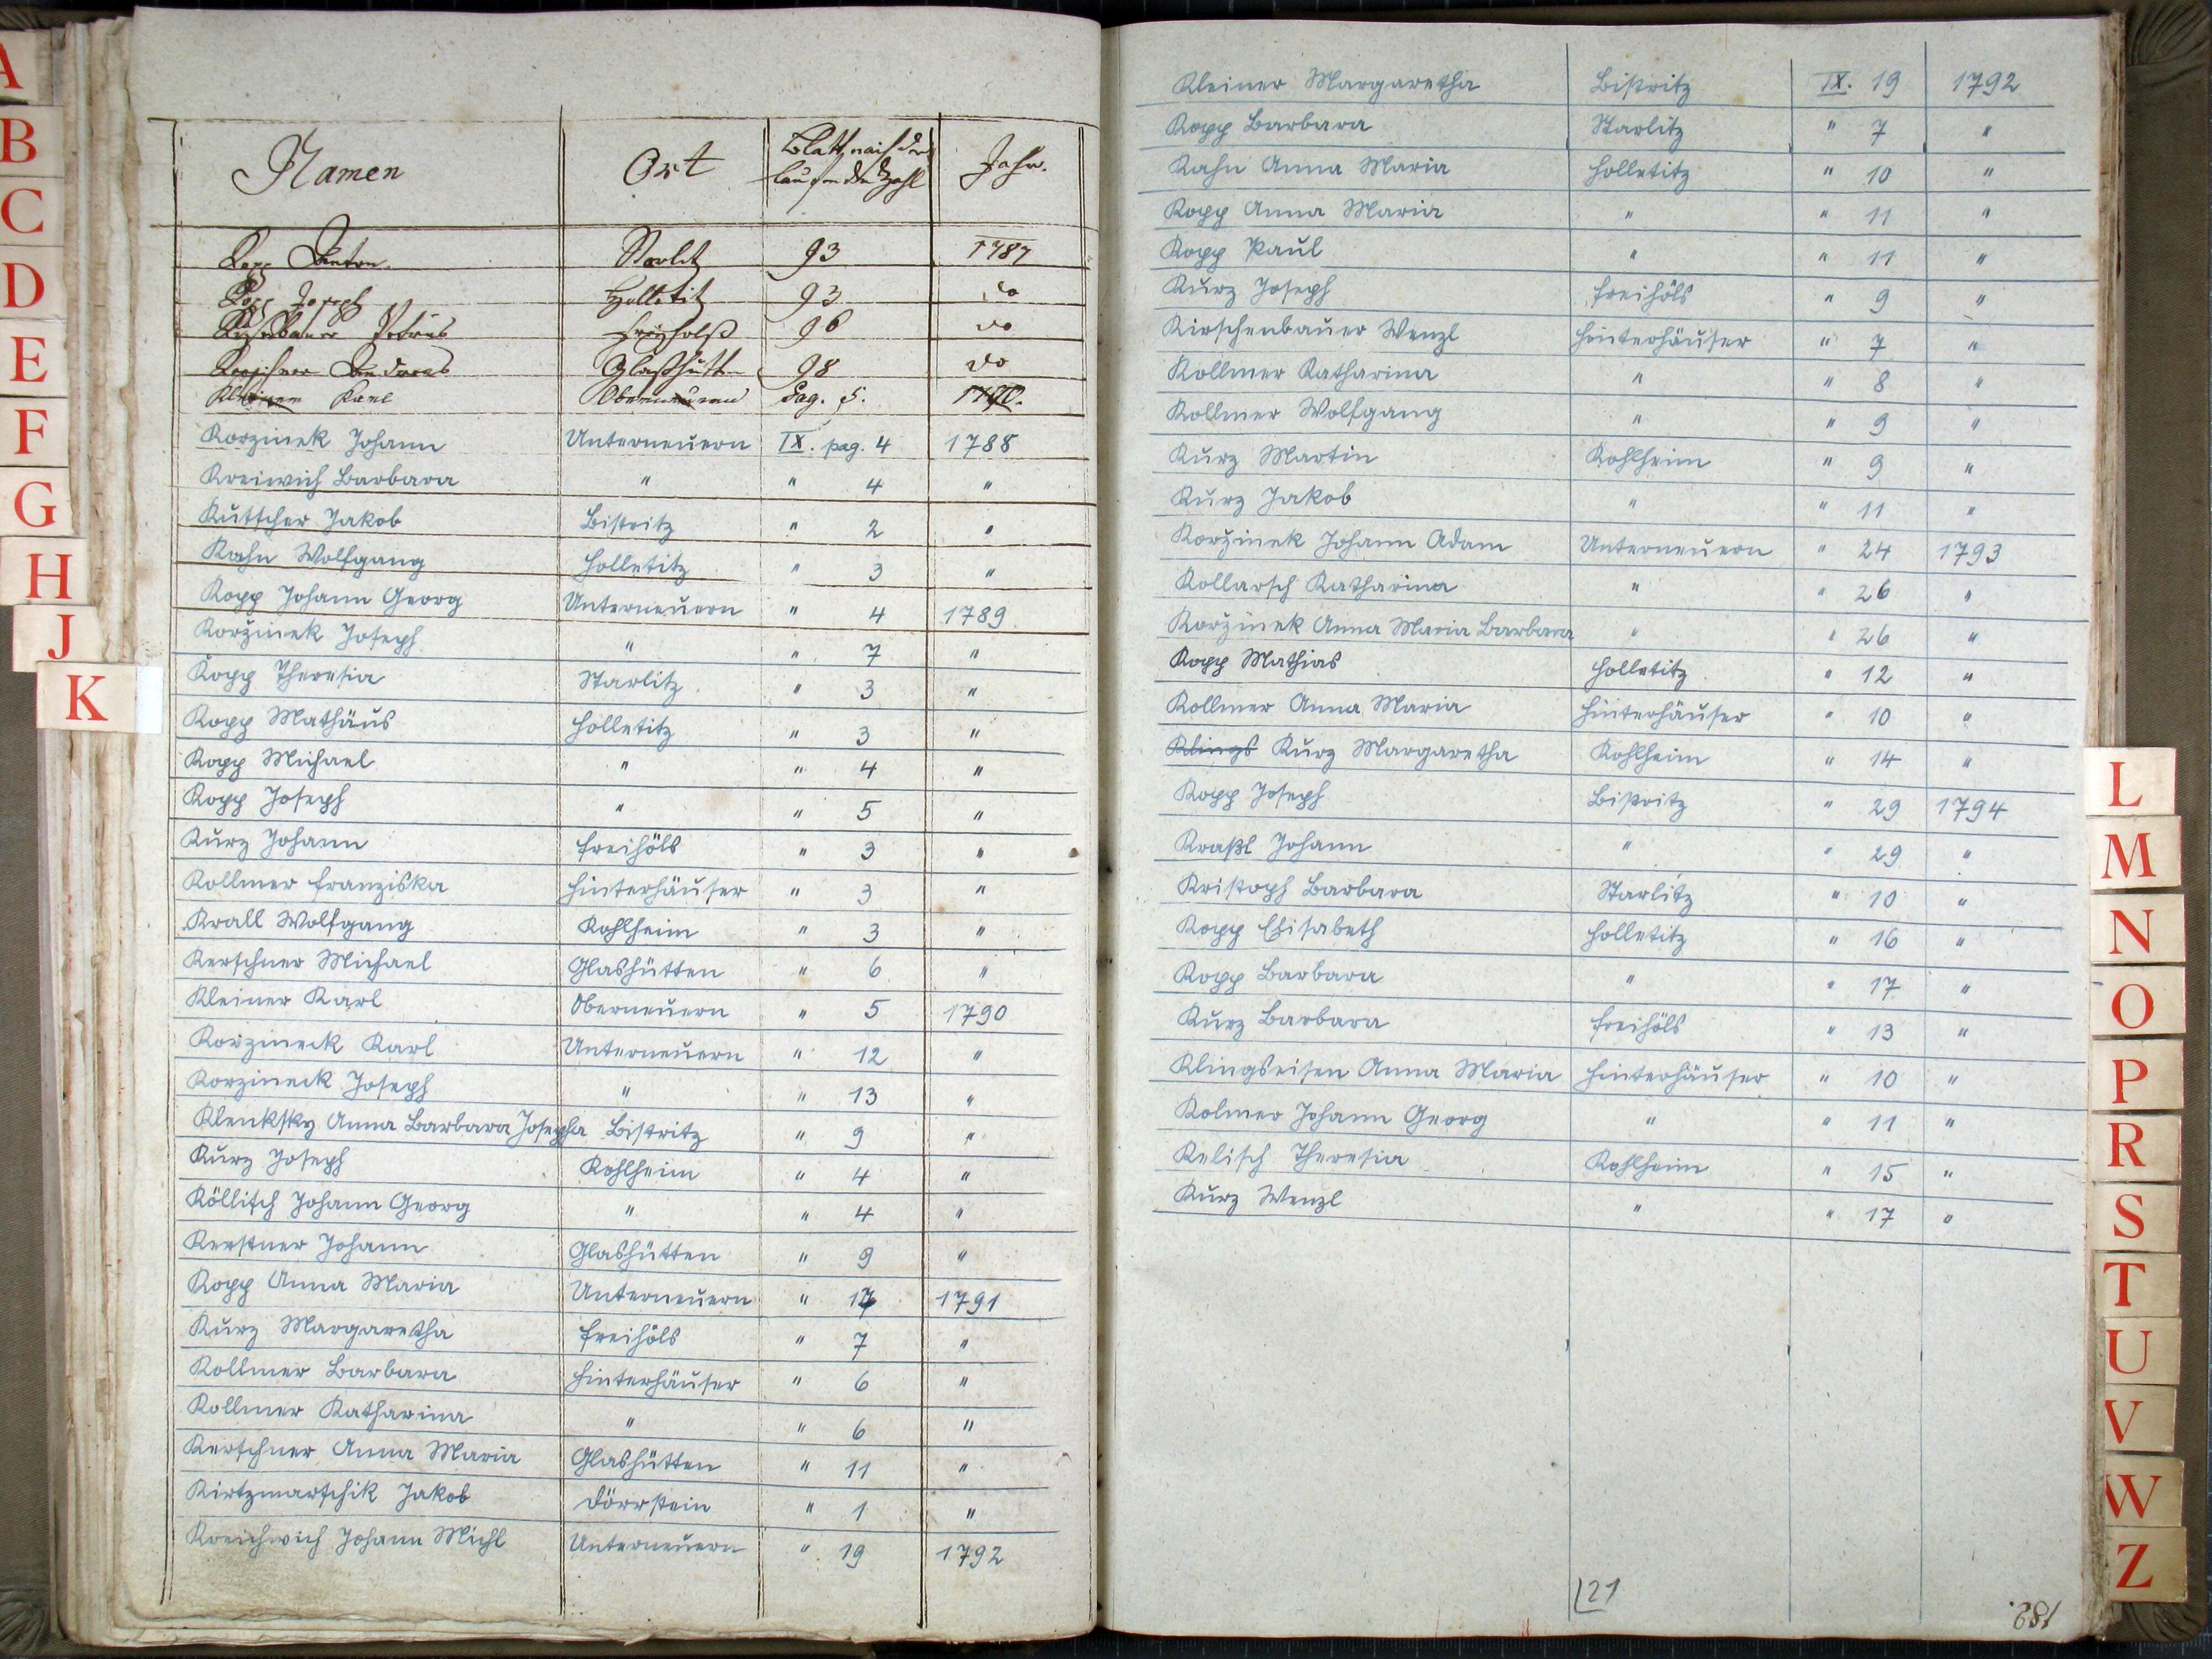 Namen Ort Blatt nach der laufenden Zahl Jahr.
Kopp Anton Starlitz 93 1787
Kopp Joseph Holletitz 93 do
Petrus 96 do
Andreas Glashütten 98 do
Kleiner Karl Oberneuern Pag. 5. 1790.
Korzinek Johann Unterneuern IX. pag. 4 1788
Kreiwich Barbara " " 4 "
Kuttscher Jakob Bistritz " 2 "
Kahn Wolfgang Holletitz " 3 "
Kopp Johann Georg Unterneuern " 4 1789
Koržinek Joseph " " 7 "
Kopp Theresia Starlitz " 3 "
Kopp Mathäus Holletitz " 3 "
Kopp Michael " " 4 "
Kopp Joseph " " 5 "
Kurz Johann Freihöls " 3 "
Kollmer Franziska Hinterhäuser " 3 "
Krall Wolfgang Kohlheim " 3 "
Kerschner Michael Glashütten " 6 "
Kleiner Karl Oberneuern " 5 1790
Koržineck Karl Unterneuern " 12 "
Korzineck Joseph " " 13 "
Klenksky Anna Barbara Josepha Bistritz " 9 "
Kurz Joseph Kohlheim " 4 "
Köllisch Johann Georg " " 4 "
Kerstner Johann Glashütten " 9 "
Kopp Anna Maria Unterneuern " 17 1791
Kurz Margaretha Freihöls " 7 "
Kollmer Barbara Hinterhäuser " 6 "
Kollmer Katharina " " 6 "
Kerschner Anna Maria Glashütten " 11 "
Kirtzmarschik Jakob Dörrstein " 1 "
Kreichwich Johann Michl Unterneuern " 19 1792
Kleiner Margaretha Bistritz IX. 19 1792
Kopp Barbara Starlitz " 7 "
Kahn Anna Maria Holletitz " 10 "
Kopp Anna Maria " " 11 "
Kopp Paul " " 11 "
Kurz Joseph Freihöls " 9 "
Kirschenbauer Wenzl Hinterhäuser " 7 "
Kollmer Katharina " " 8 "
Kollmer Wolfgang " " 9 "
Kurz Martin Kohlheim " 9 "
Kurz Jakob " " 11 "
Koržinek Johann Adam Unterneuern " 24 1793
Kollarsch Katharina " " 26 "
Koržinek Anna Maria Barbara " " 26 "
Kopp Mathias Holletitz " 12 "
Kollmer Anna Maria Hinterhäuser " 10 "
Klings Kurz Margaretha Kohlheim " 14 "
Kopp Joseph Bistritz " 29 1794
Kraßl Johann " " 29 "
Kristoph Barbara Starlitz " 10 "
Kopp Elisabeth Holletitz " 16 "
Kopp Barbara " " 17 "
Kurz Barbara Freihöls " 13 "
Klingseisen Anna Maria Hinterhäuser " 10 "
Kolmer Johann Georg " " 11 "
Kelisch Theresia Kohlheim " 15 "
Kurz Wenzl " " 17 "
21
182.
A
B
C
D
E
F
G
H
J
K
L
M
N
O
P
R
S
T
U
V
W
Z